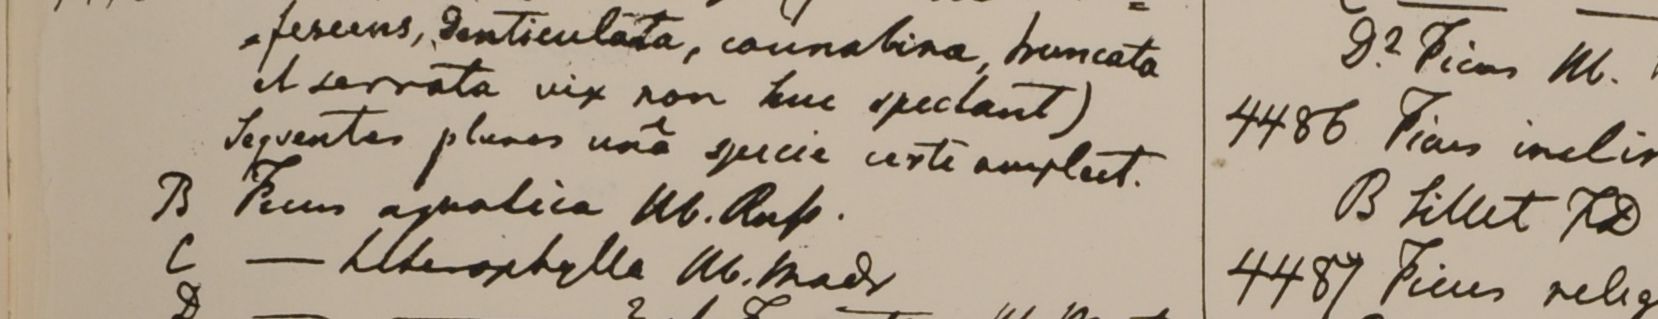 -fescens, denticulata, cannabina, truncata
et serrata vix non huc spectant)
Sequentes plures unâ specie certe amplect.
B Ficus aquatica Hb. Russ.
C — heterophylla Hb. Madr
D
D? Ficus Hb.
4486 Ficus
B Sillet FD
4487 Ficus relig